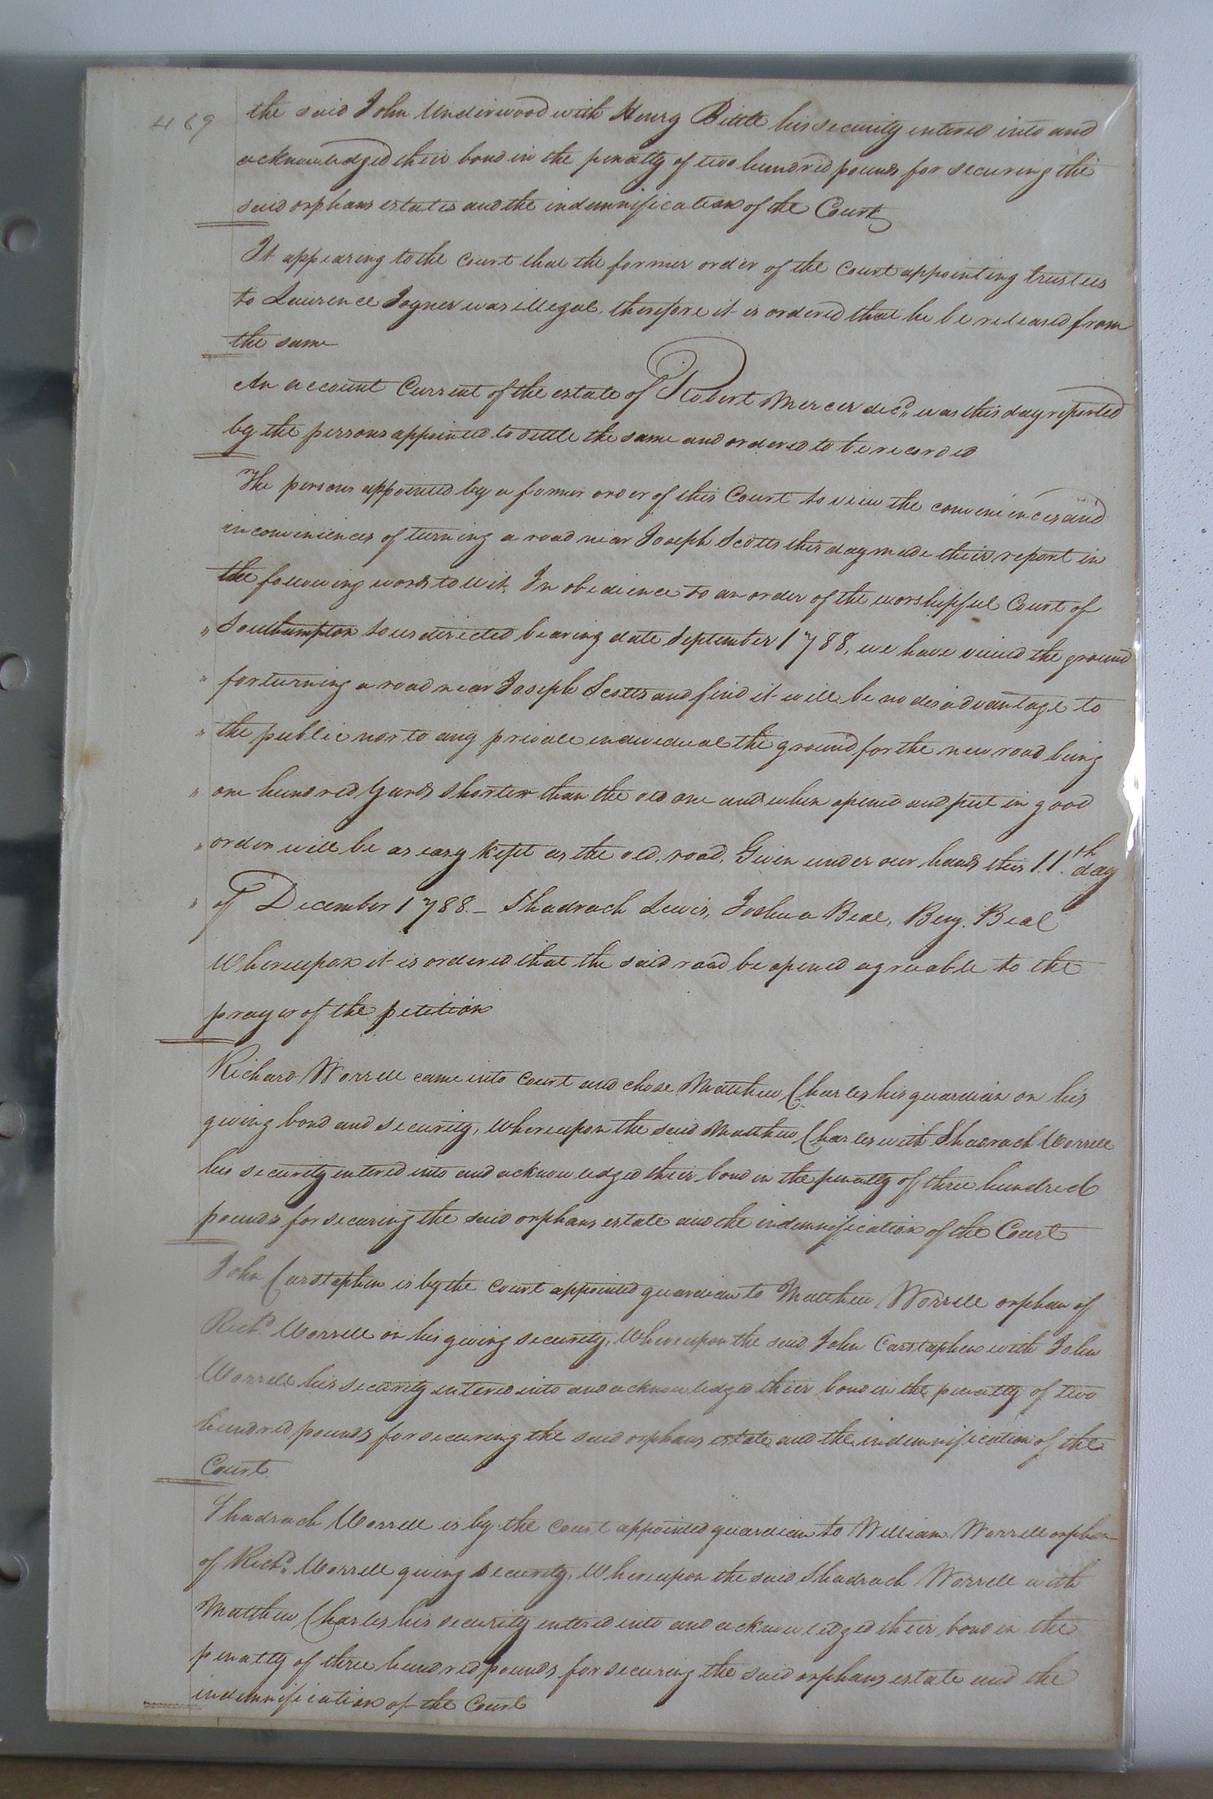 469
the said John Underwood with Henry Bittle his security entered into and
acknowledged their bond in the penalty of two hundred pounds for securing the
said orphans estates and the indemnification of the Court
It appearing to the Court that the former order of the Court appointing trustees
to Laurence Joyner was illegal therefore it is ordered that he be released from
the same
An account Current of the estate of Robert Mercer decd. was this day reported
by the persons appointed to settle the same and ordered to be recorded
The persons appointed by a former order of this Court to view the conveniences and
inconveniences of turning a road near Joseph Scotts this day made their report in
the following words to wit, In obedience to an order of the worshipful Court of
" Southampton to us directed bearing date September 1788, we have viewed the ground
" for turning a road near Joseph Scotts and find it will be no disadvantage to
" the public nor to any private individual the ground for the new road being
" one hundred yards shorter than the old one and when opened and put in good
" order will be as easy kept as the old road. Given under our hands this 11th day
" of December 1788. – Shadrach Lewis, Joshua Beal, Benj. Beal
Whereupon it is ordered that the said road be opened agreable to the
prayer of the petition
Richard Worrell came into Court and chose Matthew Charles his guardian on his
giving bond and security, Whereupon the said Matthew Charles with Shadrach Worrell
his security entered into and acknowledged their bond in the penalty of three hundred
pounds for securing the said orphans estate and the indemnification of the Court
John Carstaphen is by the Court appointed guardian to Matthew Worrell orphan of
Richd. Worrell on his giving security, Whereupon the said John Carstaphen with John
Worrell his security entered into and acknowledged their bond in the penalty of two
hundred pounds for securing the said orphans estate and the indemnification of the
Court
Shadrach Worrell is by the Court appointed guardian to William Worrell orphan
of Richd. Worrell giving security, Whereupon the said Shadrach Worrell with
Matthew Charles his security entered into and acknowledged their bond in the
penalty of three hundred pounds for securing the said orphans estate and the
indemnification of the Court